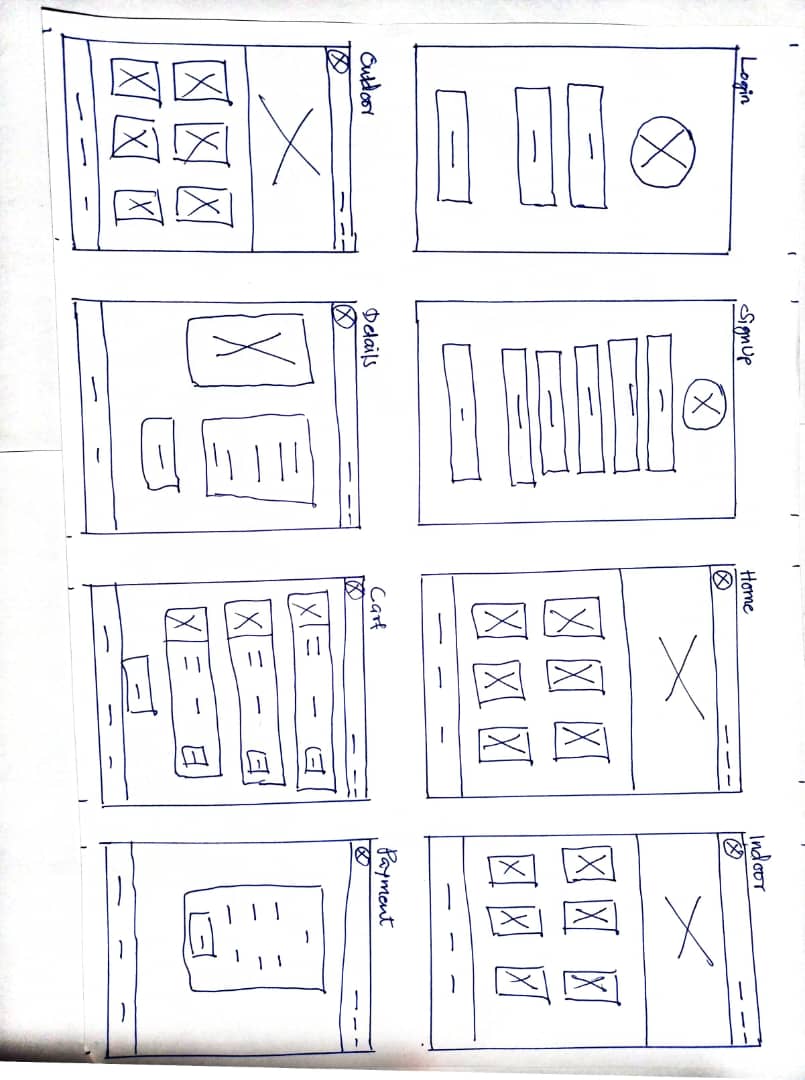 Login
SignUp
Home
Indoor
Outdoor
Details
Cart
Payment